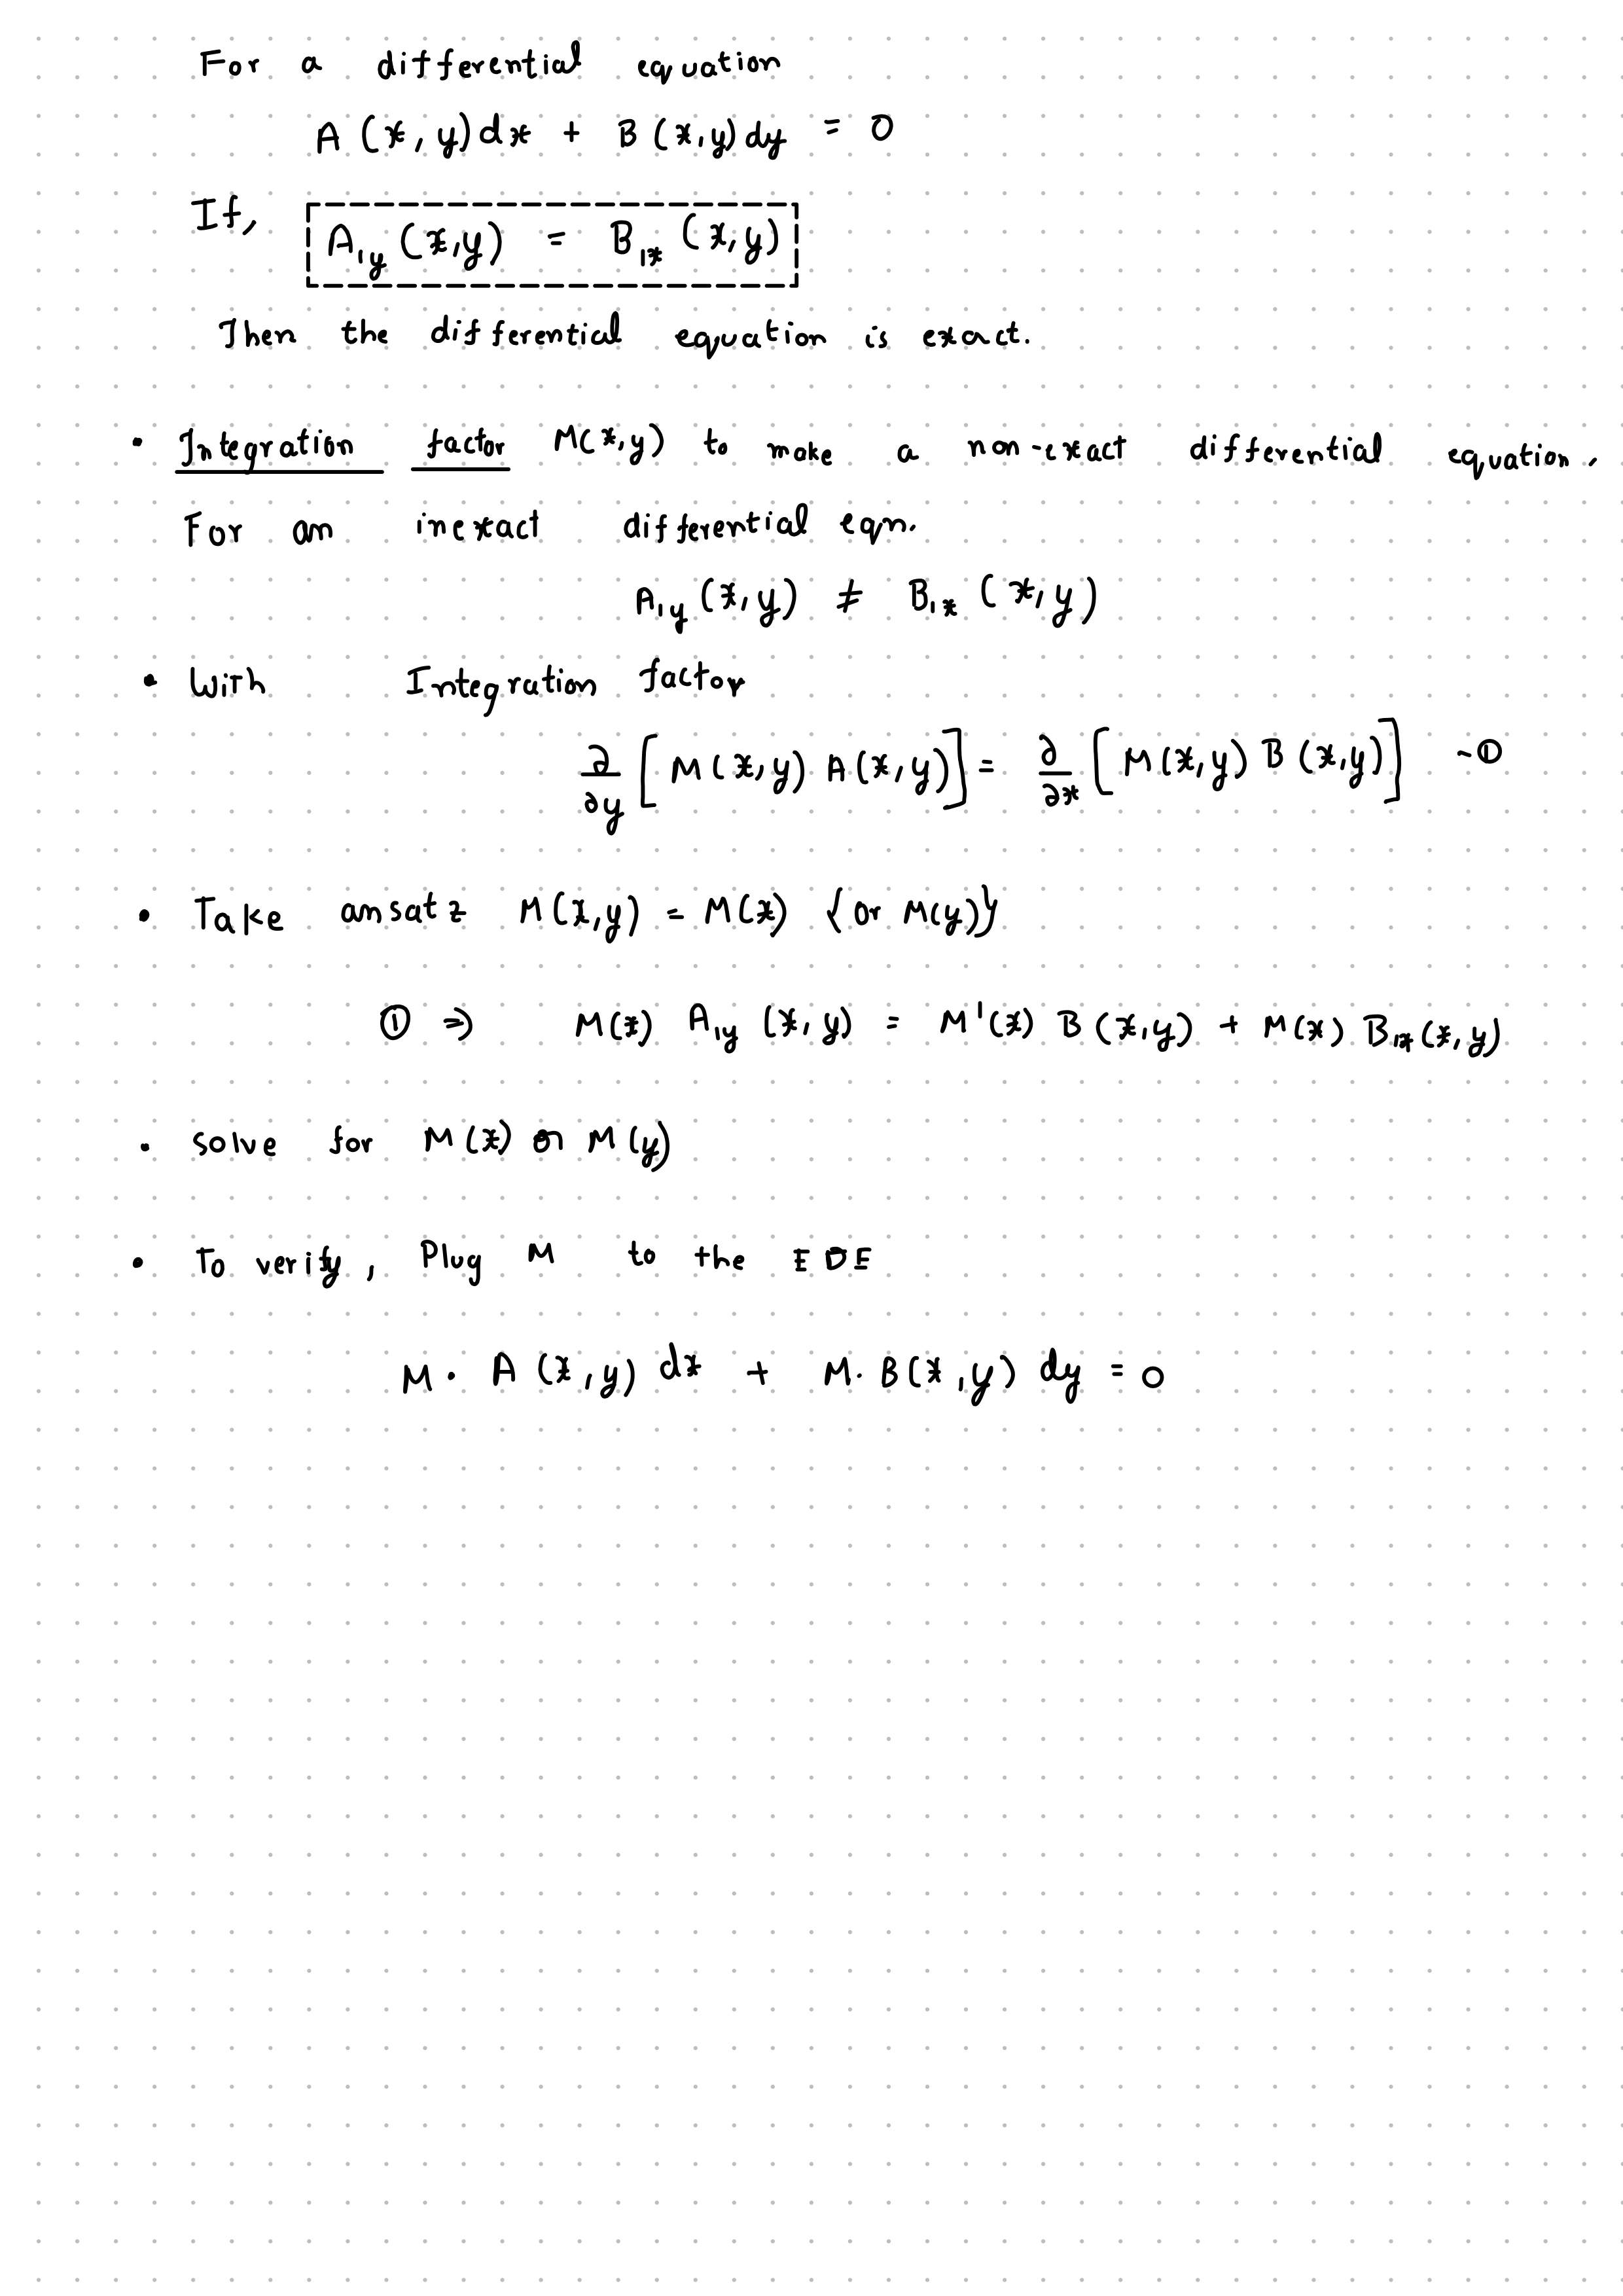 For a differential equation
A (x, y) dx + B (x,y) dy = 0
If, A,y (x,y) = B,x (x,y)
Then the differential equation is exact.
• Integration factor M(x,y) to make a non-exact differential equation.
For an inexact differential eqn.
A,y (x,y) ≠ B,x (x,y)
• With Integration factor
∂/∂y [M(x,y) A(x,y)] = ∂/∂x [M(x,y) B(x,y)] -①
• Take ansatz M(x,y) = M(x) {or M(y)}
① ⇒ M(x) A,y (x,y) = M'(x) B(x,y) + M(x) B,x(x,y)
• Solve for M(x) or M(y)
• To verify, Plug M to the EDE
M· A (x,y) dx + M· B(x,y) dy = 0